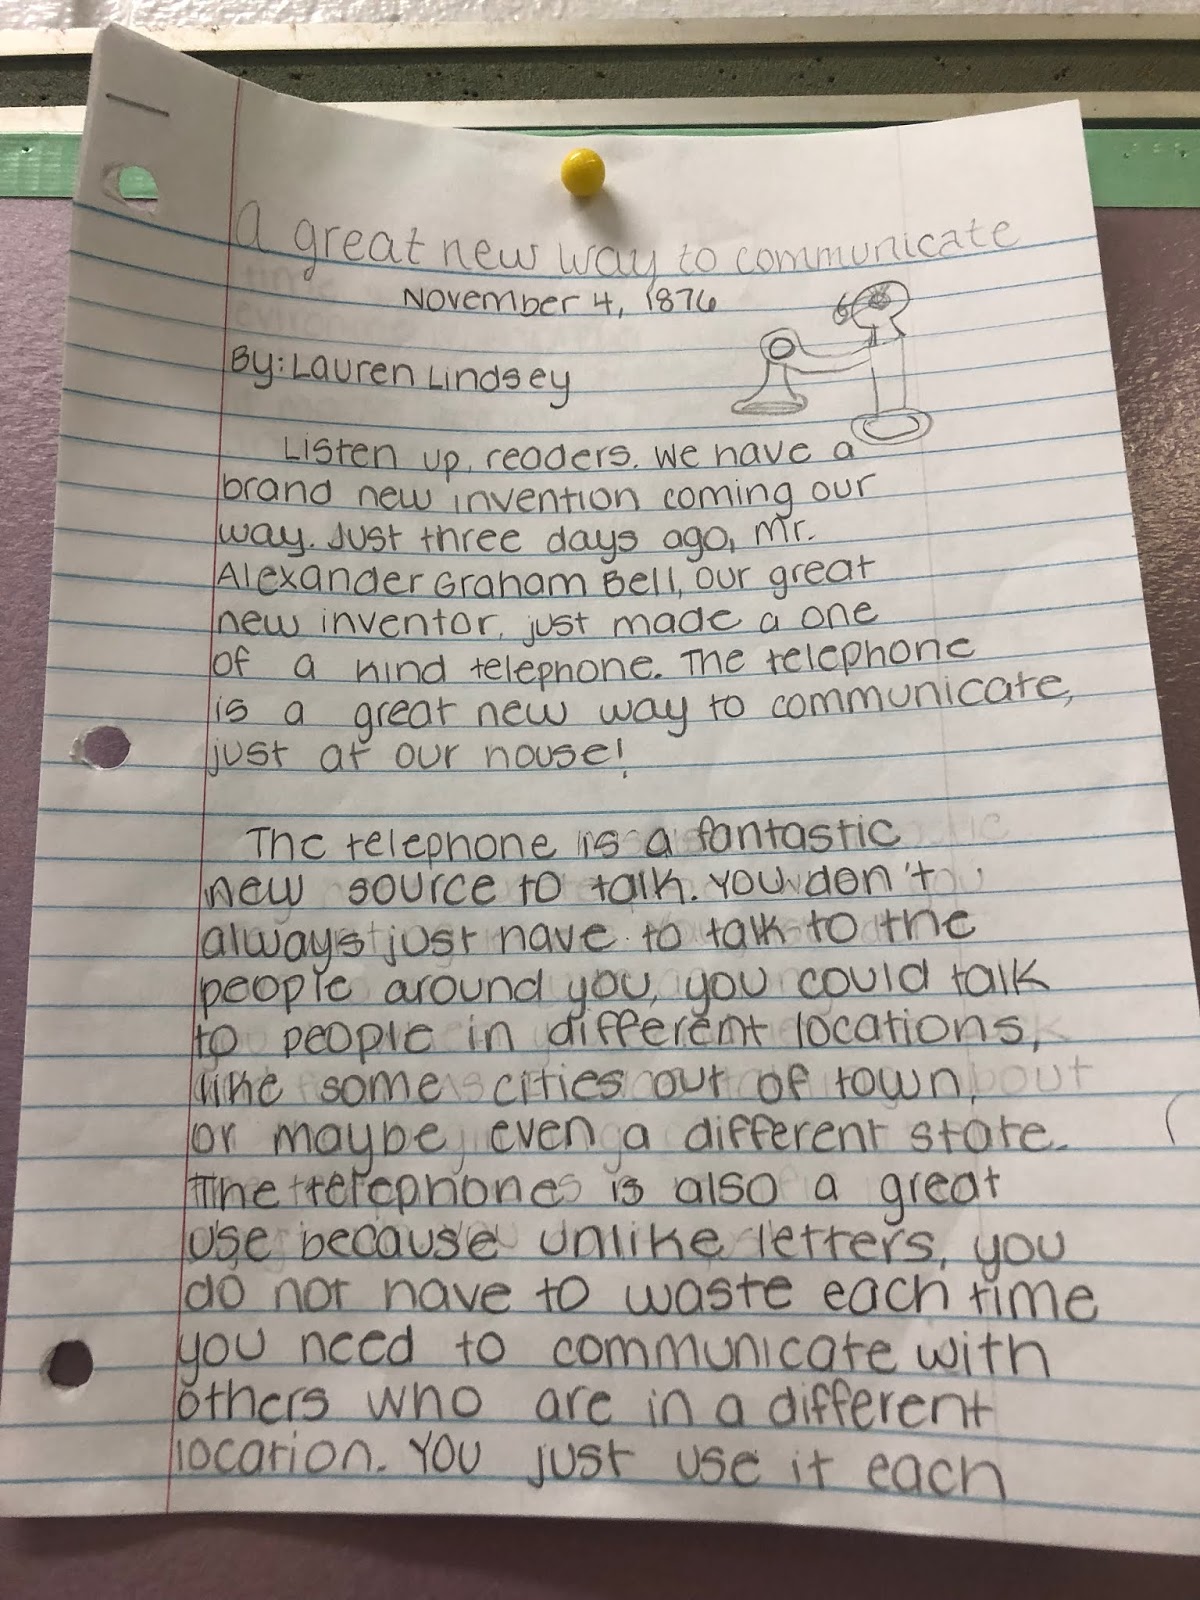 A great new way to communicate
November 4, 1876
By: Lauren Lindsey
Listen up, readers. We have a
brand new invention coming our
way. Just three days ago, Mr.
Alexander Graham Bell, our great
new inventor, just made a one
of a kind telephone. The telephone
is a great new way to communicate,
just at our house!
The telephone is a fantastic
new source to talk. You don't
always just have to talk to the
people around you, you could talk
to people in different locations,
like some cities out of town,
or maybe even a different state.
The telephone is also a great
use because unlike letters, you
do not have to waste each time
you need to communicate with
others who are in a different
location. You just use it each